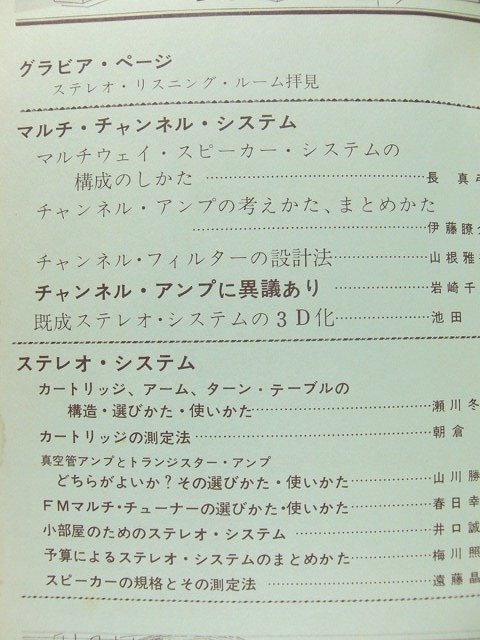 グラビア・ページ
ステレオ・リスニング・ルーム拝見
マルチ・チャンネル・システム
マルチウェイ・スピーカー・システムの
構成のしかた……………………長 真弓
チャンネル・アンプの考えかた、まとめかた
……………………伊藤瞭介
チャンネル・フィルターの設計法……山根雅
チャンネル・アンプに異議あり……岩崎千
既成ステレオ・システムの3D化……池田
ステレオ・システム
カートリッジ、アーム、ターン・テーブルの
構造・選びかた・使いかた……………瀬川冬
カートリッジの測定法……………………朝倉
真空管アンプとトランジスター・アンプ
どちらがよいか?その選びかた・使いかた……山川勝
FMマルチ・チューナーの選びかた・使いかた……春日幸
小部屋のためのステレオ・システム……………井口誠
予算によるステレオ・システムのまとめかた……梅川照
スピーカーの規格とその測定法……………遠藤晶